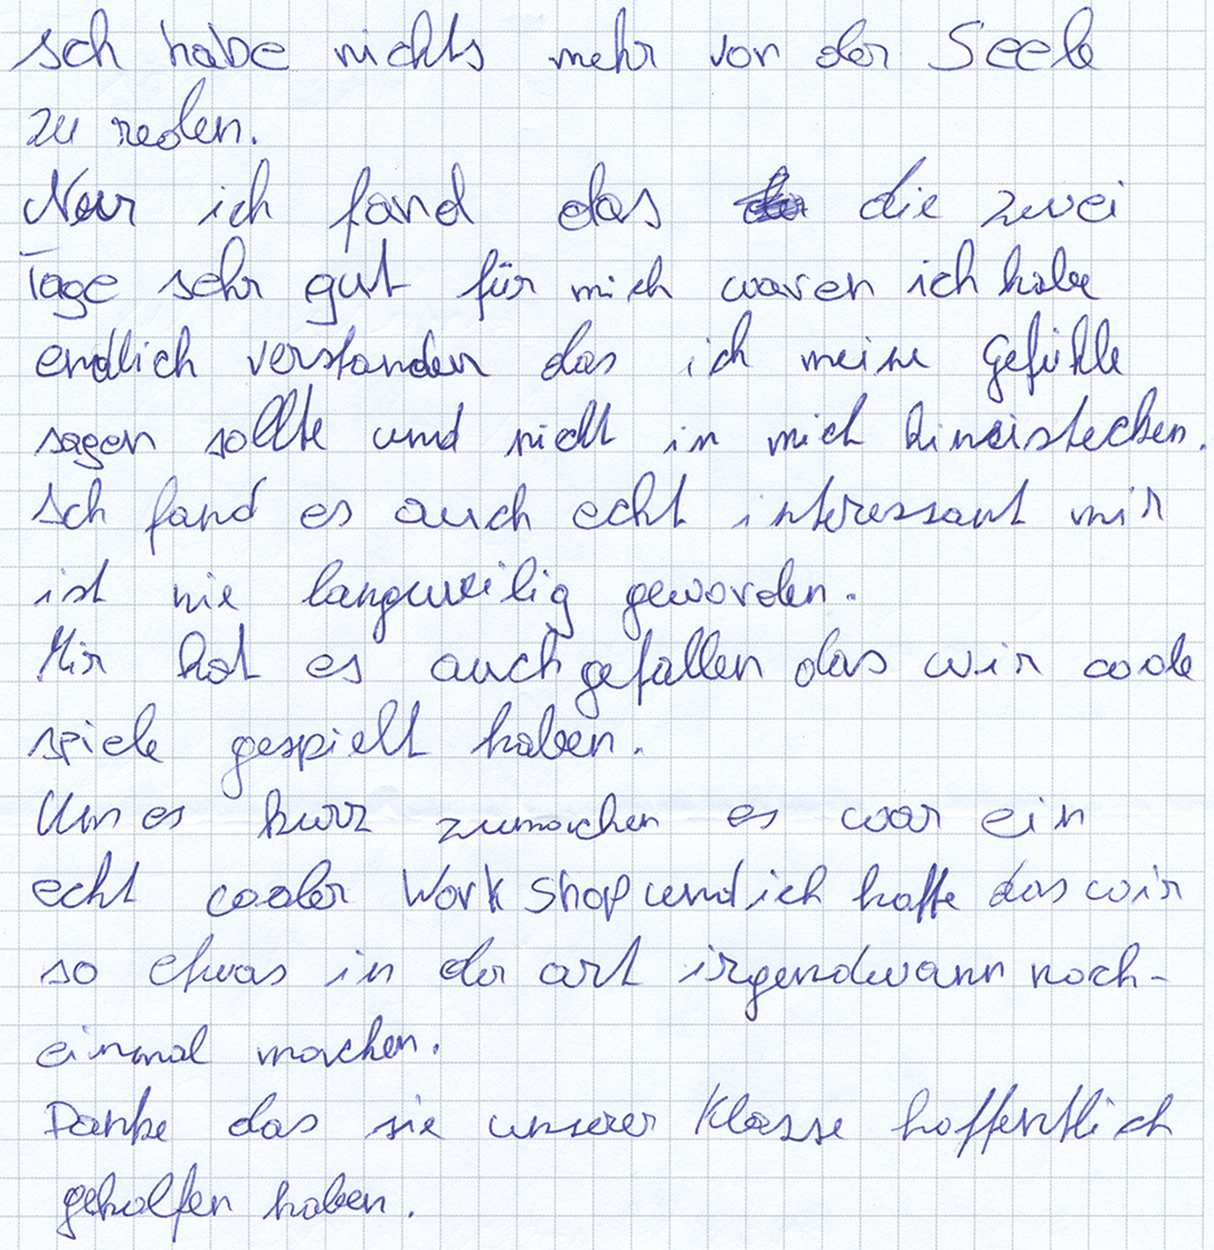 Ich habe nichts mehr von der Seele
zu reden.
Nur ich fand das die zwei
Tage sehr gut für mich waren ich habe
endlich verstanden das ich meine Gefühle
sagen sollte und nicht in mich hineinstecken.
Ich fand es auch echt interessant mir
ist nie langweilig geworden.
Mir hat es auch gefallen das wir coole
spiele gespielt haben.
Um es kurz zumachen es war ein
echt cooler Work Shop und ich hoffe das wir
so etwas in der art irgendwann noch-
einmal machen.
Danke das sie unserer Klasse hoffentlich
geholfen haben.